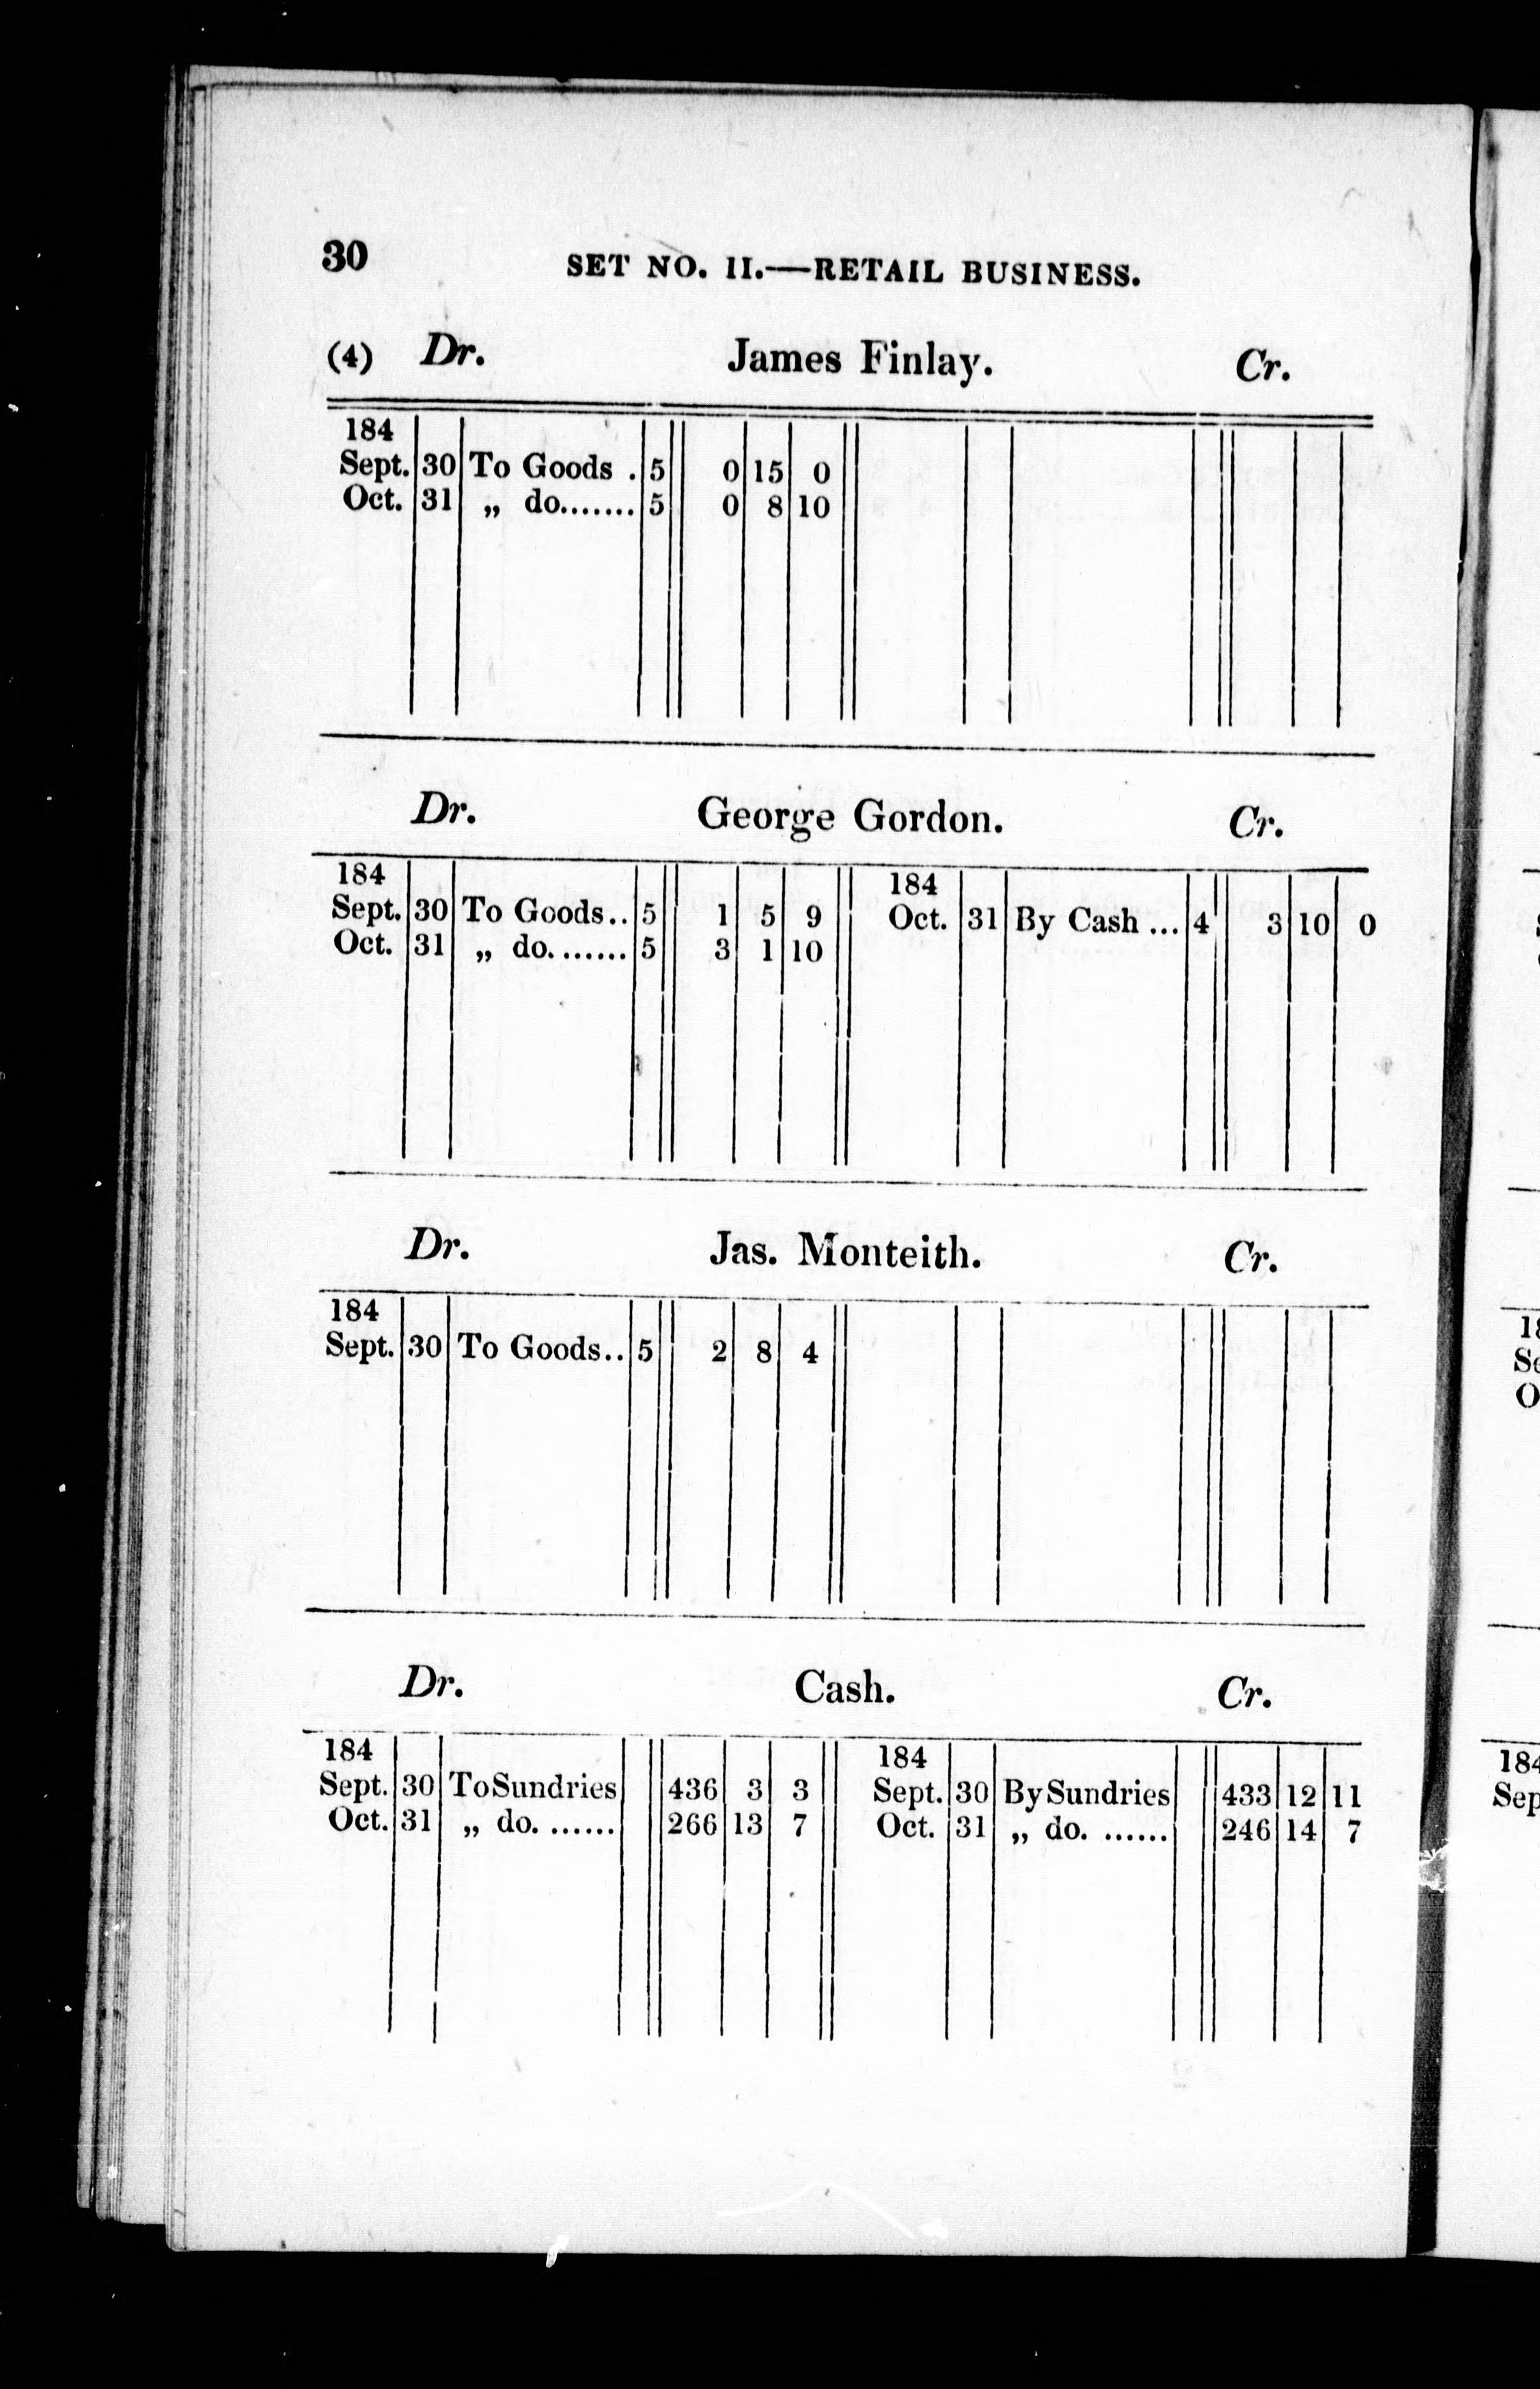 30 SET NO. II.—RETAIL BUSINESS.
(4) Dr. James Finlay. Cr.
184
Sept. 30 To Goods . 5 0 15 0
Oct. 31 „ do....... 5 0 8 10
Dr. George Gordon. Cr.
184 184
Sept. 30 To Goods.. 5 1 5 9 Oct. 31 By Cash ... 4 3 10 0
Oct. 31 „ do........ 5 3 1 10
Dr. Jas. Monteith. Cr.
184
Sept. 30 To Goods.. 5 2 8 4
Dr. Cash. Cr.
184 184
Sept. 30 To Sundries 436 3 3 Sept. 30 By Sundries 433 12 11
Oct. 31 „ do. ...... 266 13 7 Oct. 31 „ do. ...... 246 14 7
184